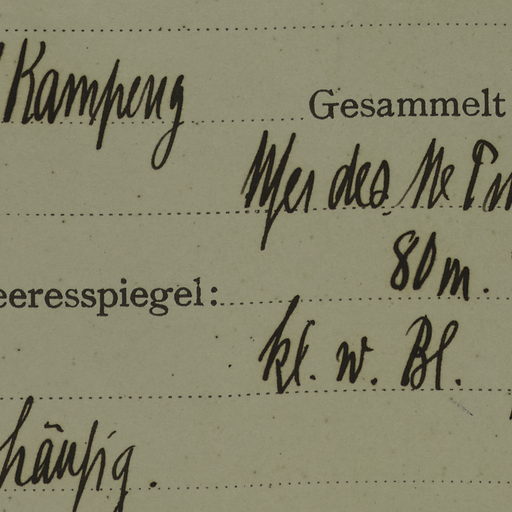 Kampeng Gesammelt
Ufer des Me Pi
eeresspiegel: 80 m.
kl. w. Bl.
häufig.